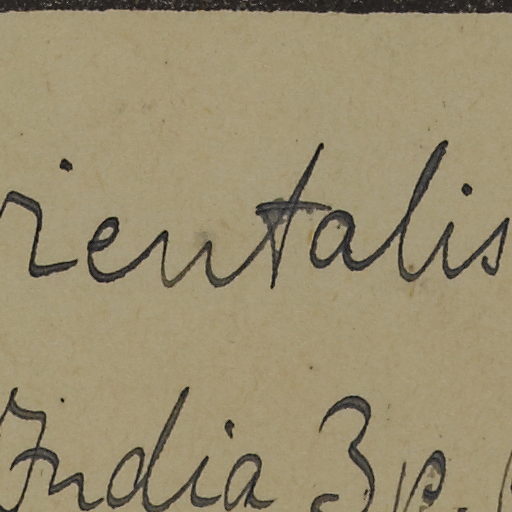 rientalis
India 3 p.